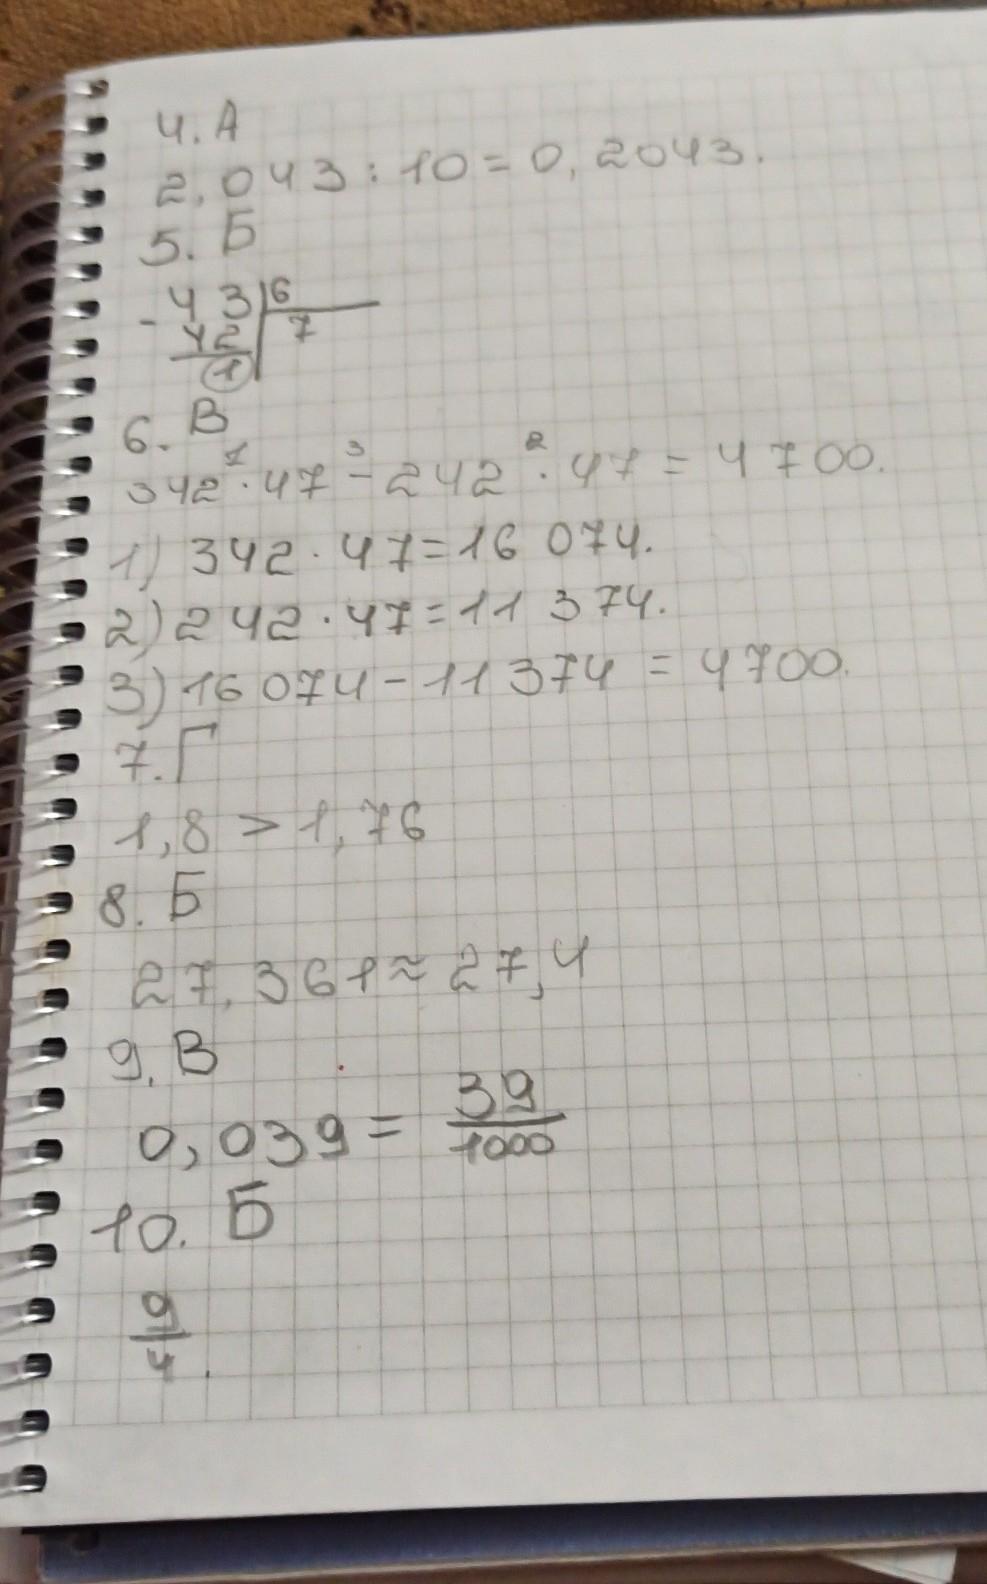 4. А
2,043 : 10 = 0,2043.
5. Б
- 43 | 6
42 | 7
1
6. В
1 3 2
342 · 47 - 242 · 47 = 4700.
1) 342 · 47 = 16 074.
2) 242 · 47 = 11 374.
3) 16 074 - 11 374 = 4700.
7. Г
1,8 > 1,76
8. Б
27,361 ≈ 27,4
9. В
0,039 = 39/1000
10. Б
9/4.